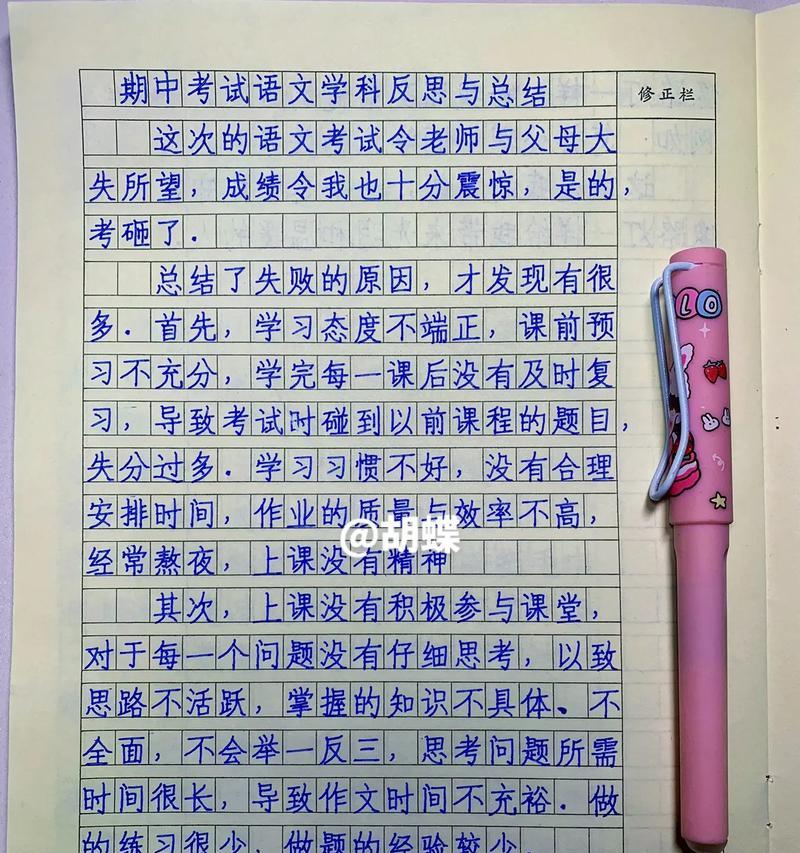 期中考试语文学科反思与总结
修正栏
这次的语文考试令老师与父母大
失所望，成绩令我也十分震惊，是的，
考砸了.
总结了失败的原因，才发现有很
多.首先，学习态度不端正，课前预
习不充分，学完每一课后没有及时复
习，导致考试时碰到以前课程的题目，
失分过多.学习习惯不好，没有合理
安排时间，作业的质量与效率不高，
@胡蝶
经常熬夜，上课没有精神
其次，上课没有积极参与课堂，
对于每一个问题没有仔细思考，以致
思路不活跃，掌握的知识不具体、不
全面，不会举一反三，思考问题所需
时间很长，导致作文时间不充裕.做
的练习很少，做题的经验较少
LO